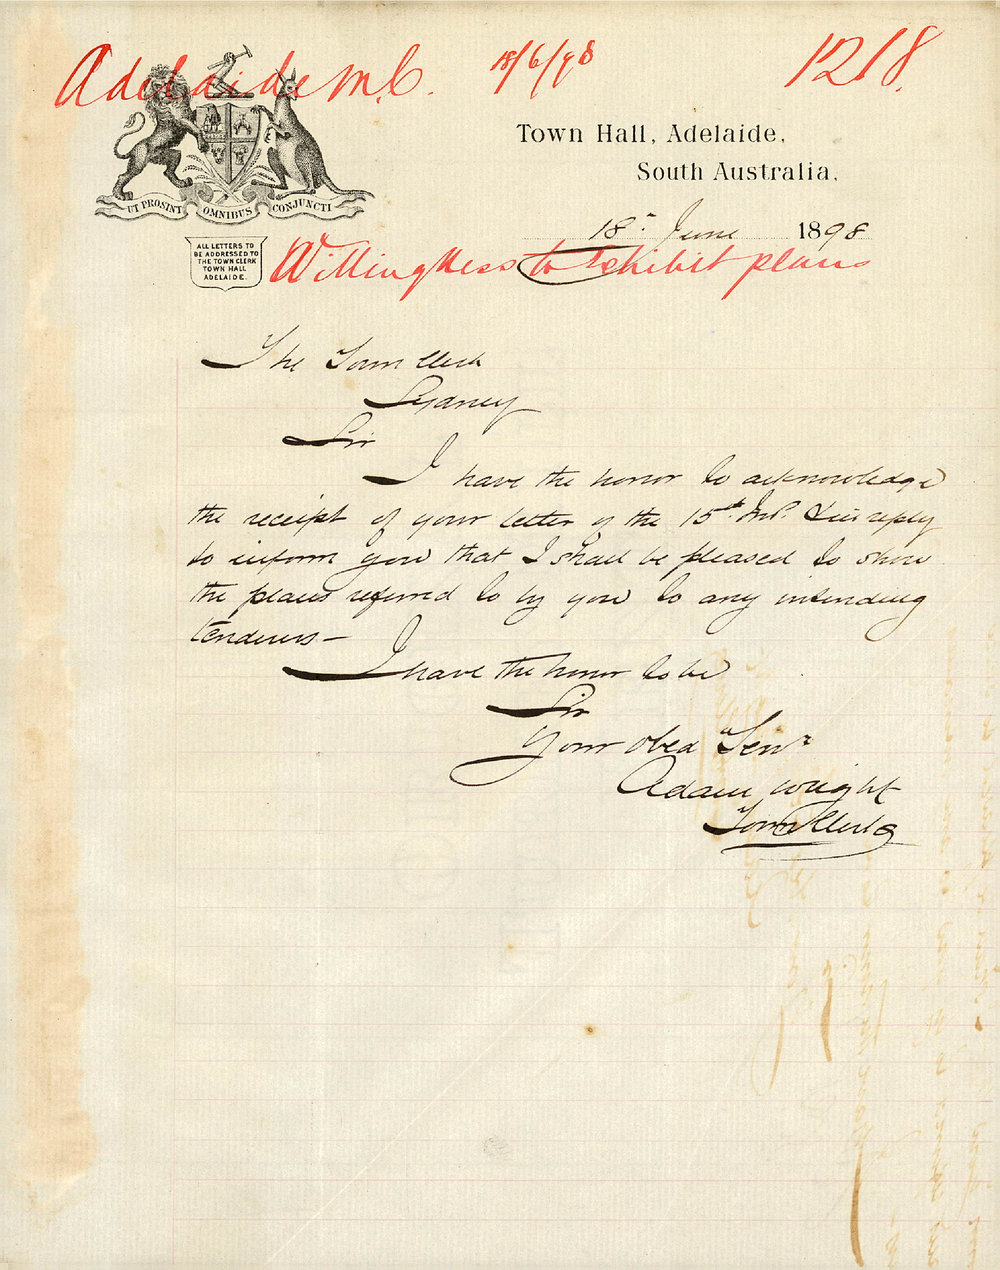 Adelaide M.C. 18/6/98 1218.
UT PROSINT OMNIBUS CONJUNCTI
Town Hall, Adelaide,
South Australia,
18th June 1898
ALL LETTERS TO
BE ADDRESSED TO
THE TOWN CLERK
TOWN HALL
ADELAIDE.
Willingness to Exhibit plans
The Town Clerk
Sydney
Sir
I have the honor to acknowledge
the receipt of your letter of the 15th Inst. & in reply
to inform you that I shall be pleased to show
the plans referred to by you to any intending
tenderers —
I have the honor to be
Sir
Your obed Servt
Adam Wright
Town Clerk